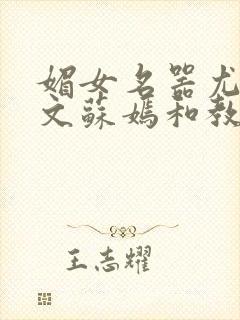 媚女名器尤
文蘇媽和教
王志耀